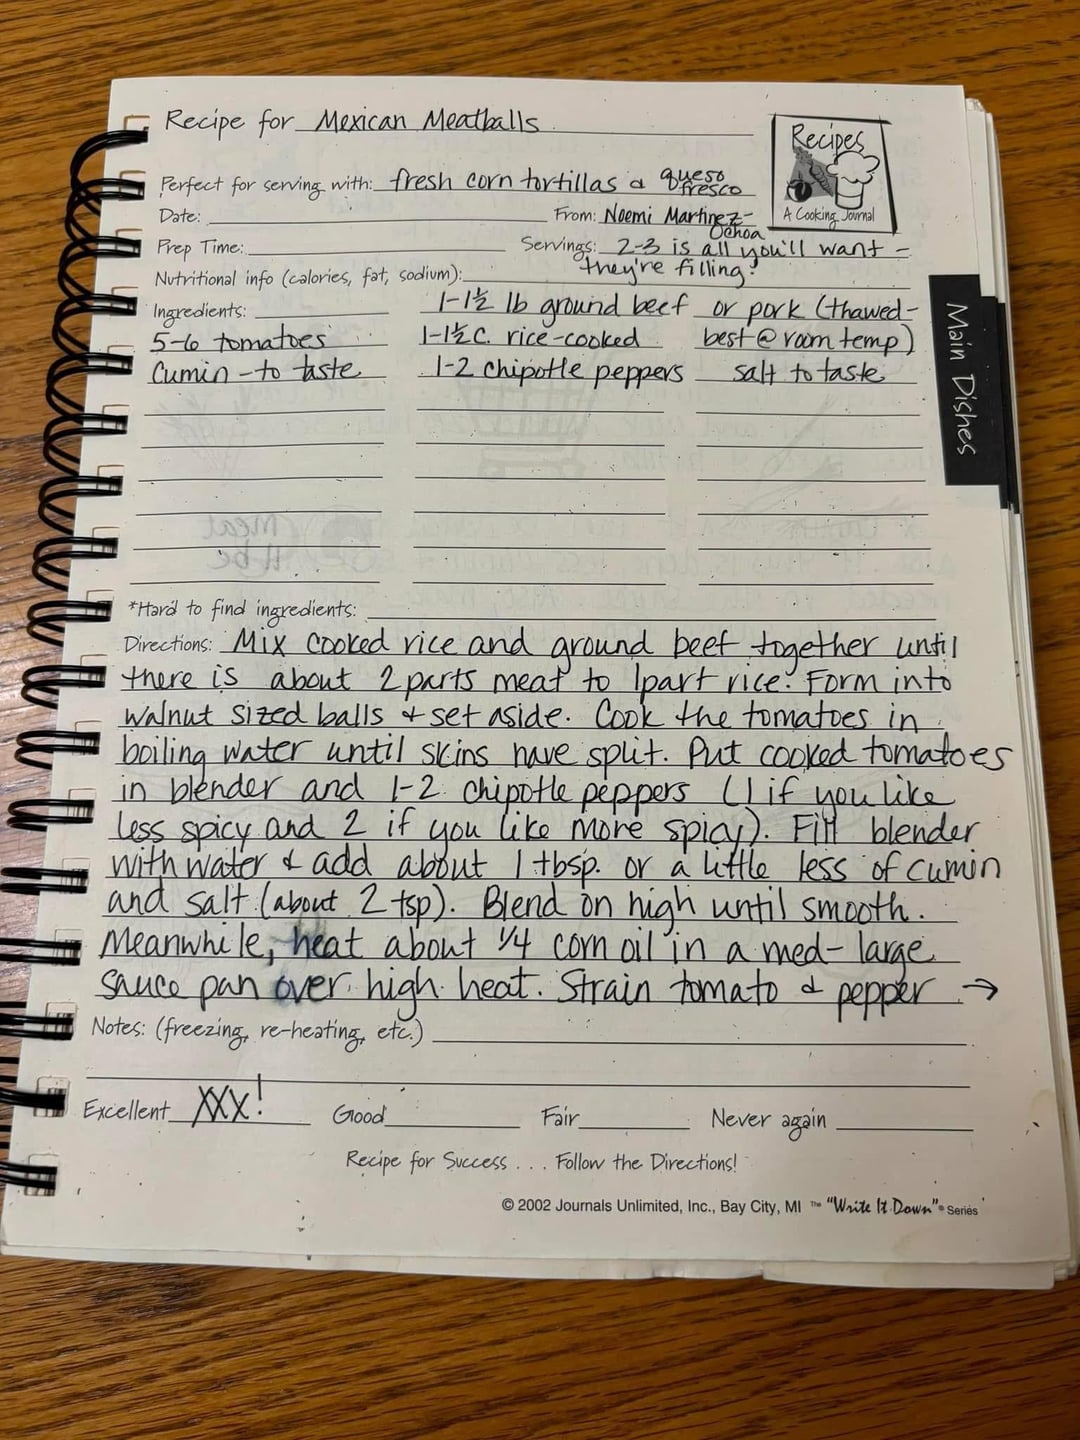 Recipe for Mexican Meatballs
Recipes
A Cooking Journal
Perfect for serving with: fresh corn tortillas & queso fresco
Date: From: Noemi Martinez-Ochoa
Prep Time: Servings: 2-3 is all you'll want - they're filling!
Nutritional info (calories, fat, sodium):
Ingredients: 1-1½ lb ground beef or pork (thawed-
5-6 tomatoes 1-1½ c. rice-cooked best @ room temp)
Cumin - to taste 1-2 chipotle peppers salt to taste
Main Dishes
*Hard to find ingredients:
Directions: Mix cooked rice and ground beef together until
there is about 2 parts meat to 1 part rice. Form into
walnut sized balls & set aside. Cook the tomatoes in
boiling water until skins have split. Put cooked tomatoes
in blender and 1-2 chipotle peppers (1 if you like
less spicy and 2 if you like more spicy). Fill blender
with water & add about 1 tbsp. or a little less of cumin
and salt (about 2 tsp). Blend on high until smooth.
Meanwhile, heat about 1/4 corn oil in a med-large
sauce pan over high heat. Strain tomato & pepper →
Notes: (freezing, re-heating, etc.)
Excellent XXX! Good Fair Never again
Recipe for Success . . . Follow the Directions!
© 2002 Journals Unlimited, Inc., Bay City, MI ™ "Write It Down"® Series